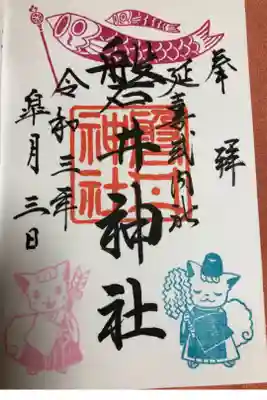 奉拝
延喜式内社
磐井神社
磐井神社
令和三年
皐月三日